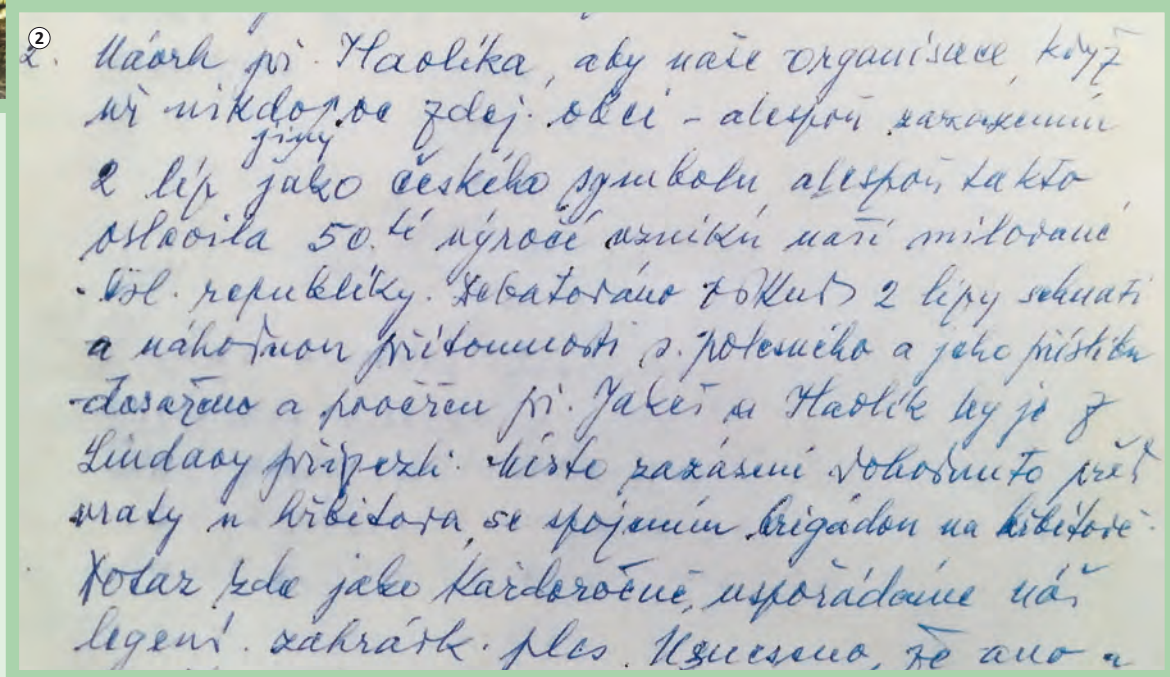 ②
2. Návrh př. Havlíka, aby naše organisace, když
již nikdo jiný ve zdej. obci - alespoň zasazením
2 líp jako českého symbolu, alespoň takto
oslavila 50.té výročí vzniku naší milované
čsl. republiky. Debatováno odkud 2 lípy sehnati
a náhodnou přítomností s. polesného a jeho příslibu
dosaženo a pověřen př. Jakeš a Havlík by je z
Lindavy přivezli. Místo zasázení dohodnuto před
vraty u hřbitova, se spojením brigádou na hřbitově.
Dotaz zda jako každoročně, uspořádáme náš
legení. zahrádk. ples. Usneseno, že ano a